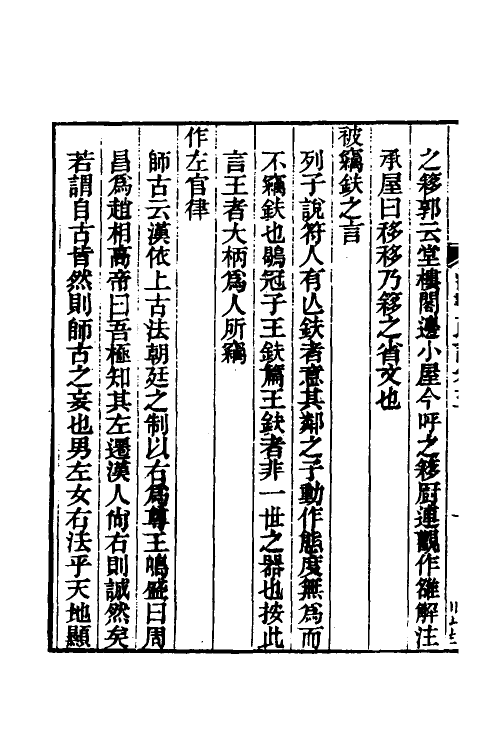 之簃郭云堂樓閣邊小屋今呼之簃厨連觀作雝解注
承屋曰栘栘乃簃之省文也
被竊鈇之言
列子說符人有亾鈇者意其鄰之子動作態度無爲而
不竊鈇也鶡冠子王鈇篇王鈇者非一世之器也按此
言王者大柄爲人所竊
作左官律
師古云漢依上古法朝廷之制以右爲尊王鳴盛曰周
昌爲趙相高帝曰吾極知其左遷漢人尙右則誠然矣
若謂自古皆然則師古之妄也男左女右法乎天地顯